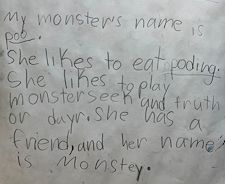 my monster's name is
poo.
She likes to eat poding.
She likes to play
monsterseek and truth
or dayr. She has a
friend, and her name
is Monstey.